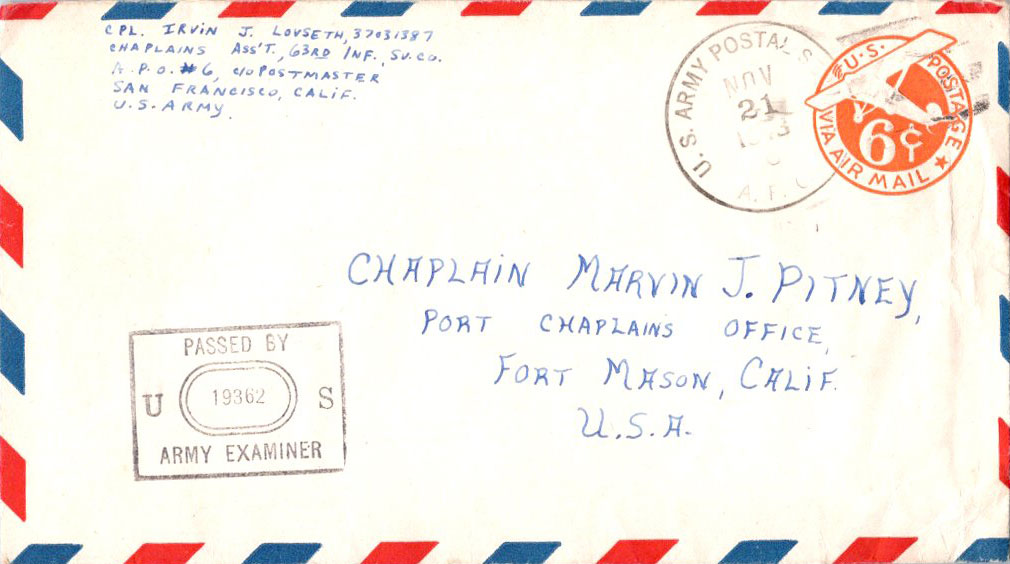 CPL. IRVIN J. LOVSETH, 37031387
CHAPLAINS ASS'T., 63RD INF., SV. CO.
A.P.O. #6, C/O POSTMASTER
SAN FRANCISCO, CALIF.
U.S. ARMY.
U.S. ARMY POSTAL S
NOV
21
A.P.
U.S. POSTAGE
6¢
VIA AIR MAIL
CHAPLAIN MARVIN J. PITNEY,
PORT CHAPLAINS OFFICE,
FORT MASON, CALIF.
U.S.A.
PASSED BY
U 19362 S
ARMY EXAMINER